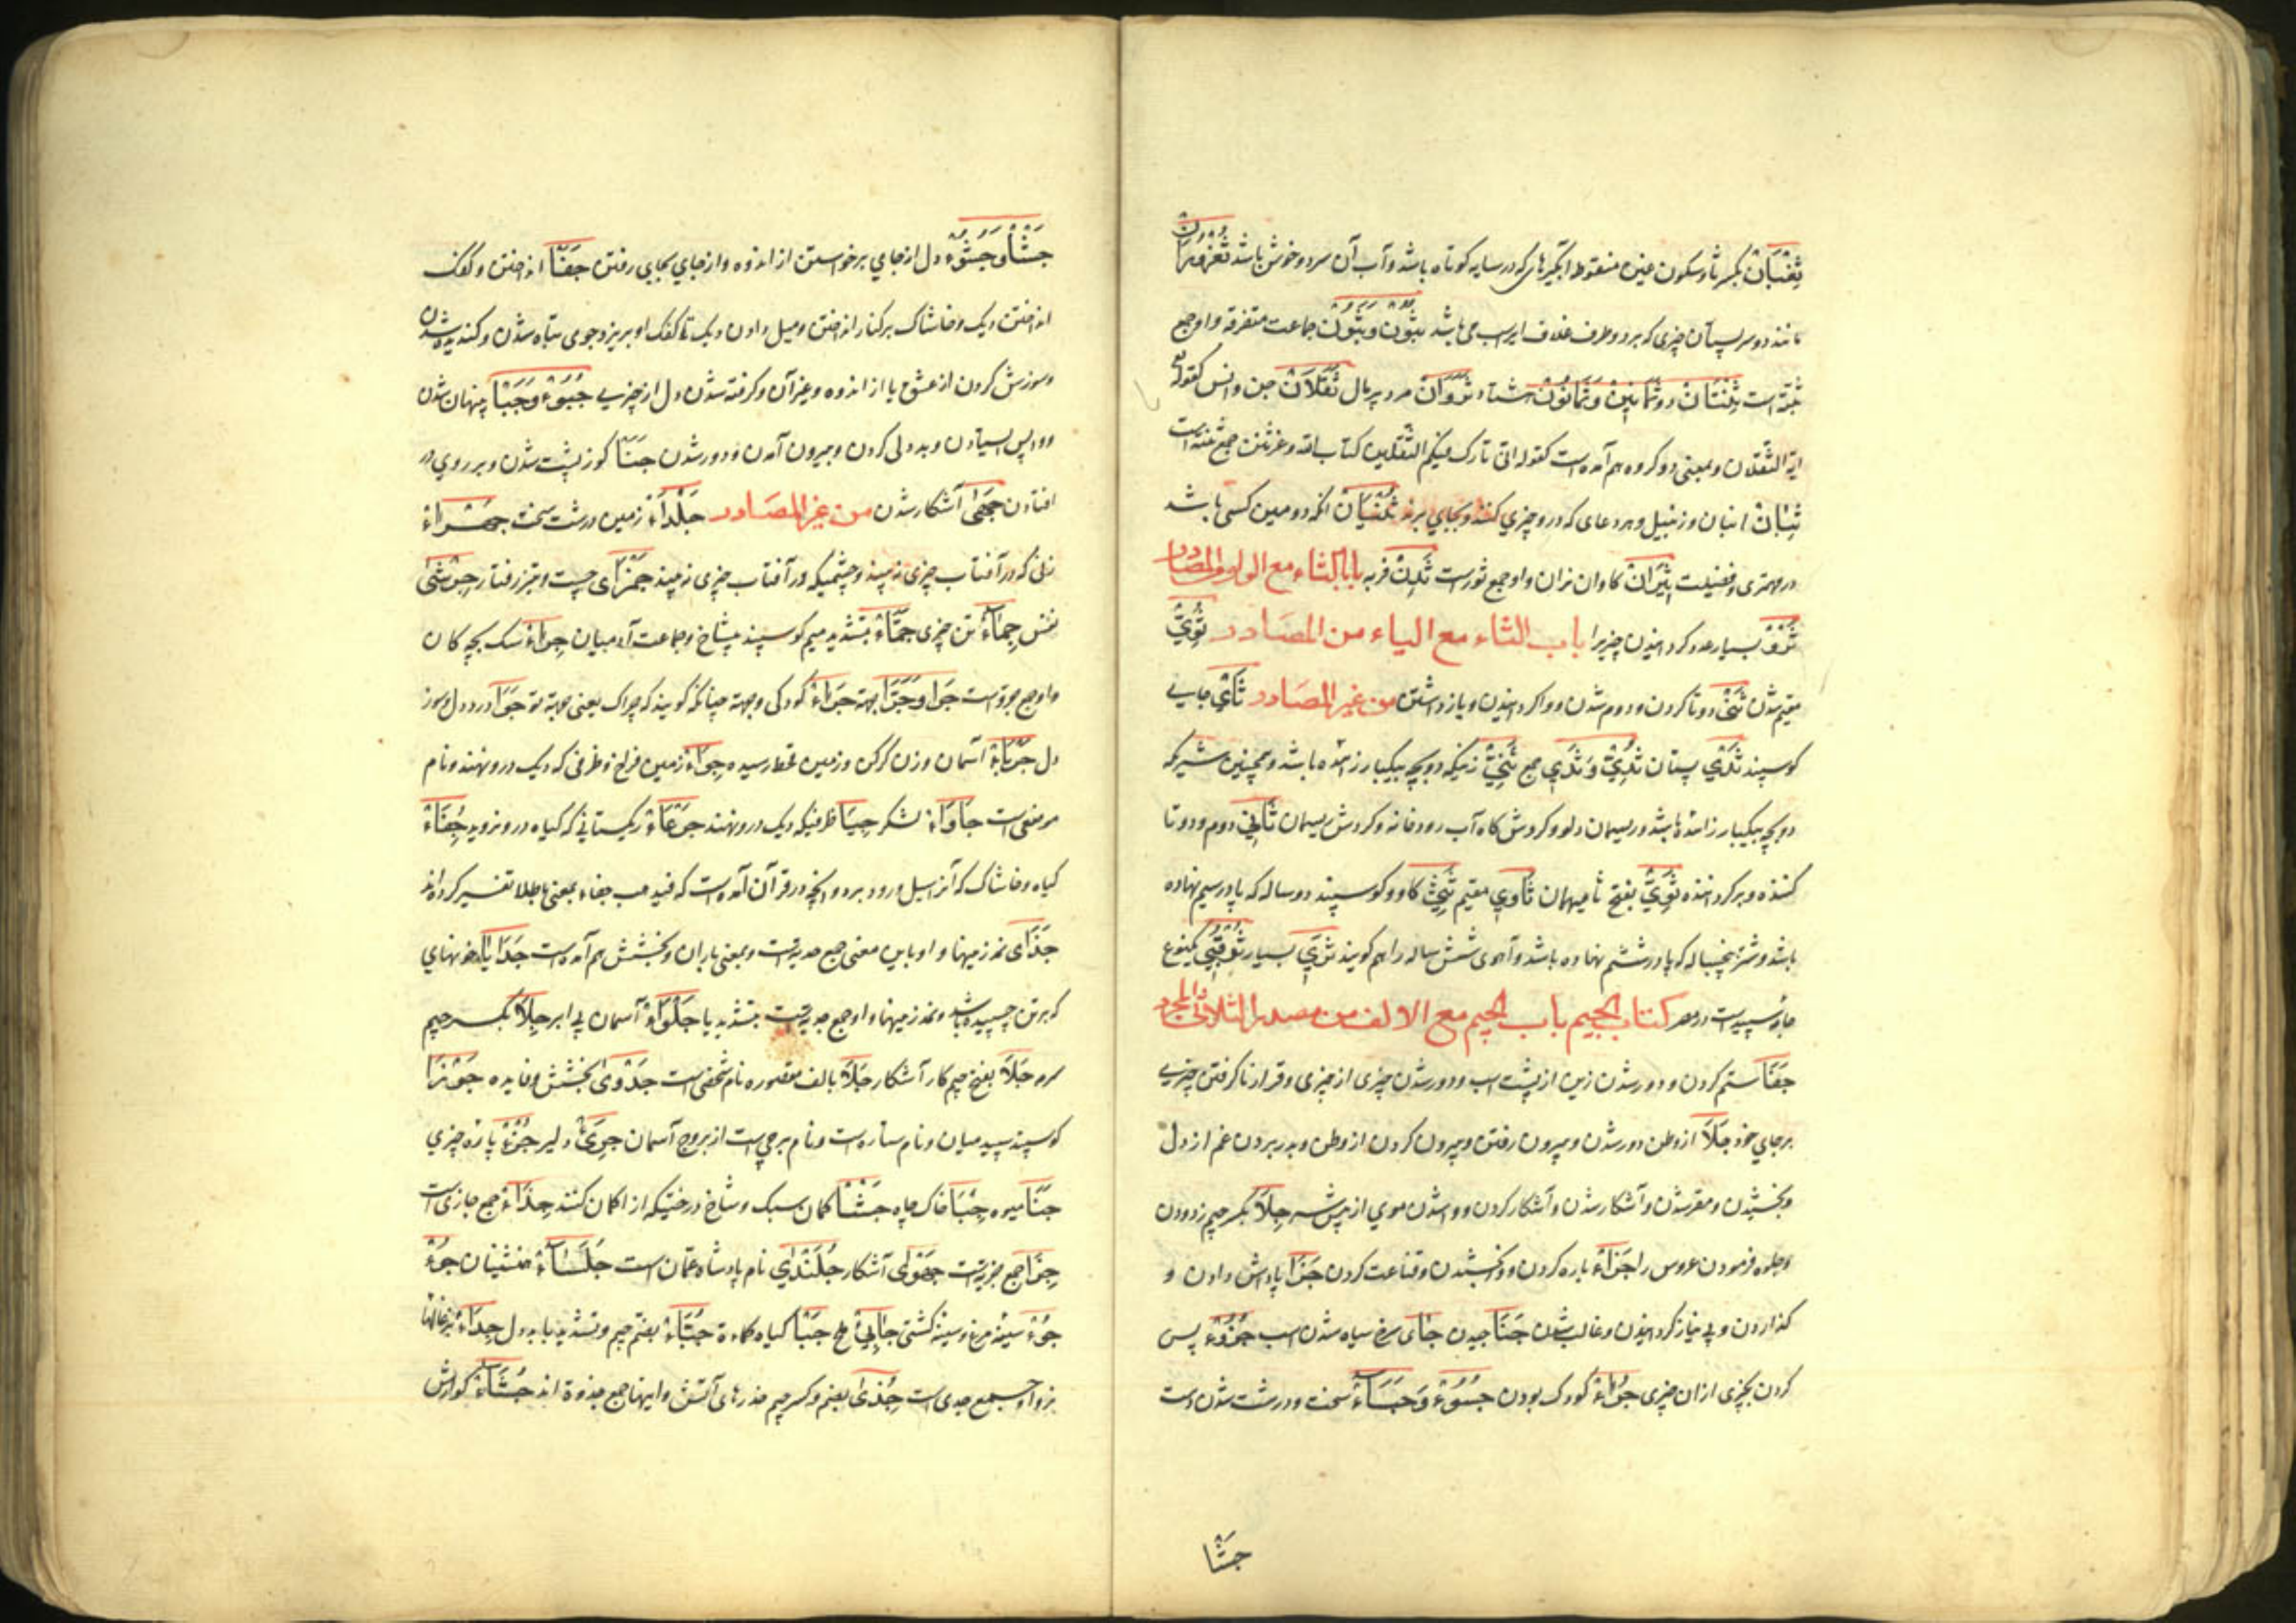 ثِغْبَانْ بکسر ثا و سکون عین منقوط آبگیرهای که در سایه کوتاه باشد و آب آن سرد و خوش باشد ثُعْرُورَانْ
مانند دو سر پستان چیزی که بر دو طرف غلاف اسب می باشد ثِبُونْ وَ ثُبُونْ جماعت متفرقه و او جمع
ثبة است ثِنْتَانْ دو ثَمَانِینْ وَ ثَمَانُونْ هشتاد ثَرْوَانْ مرد پر مال ثَقَلَانْ جن و انس کقوله تع
ایه الثقلان و بمعنی دو کروه هم آمده است کقوله انی تارک فیکم الثقلین کتاب الله و عترتی جمع
ثِبَانْ انبان و زنبیل و هر دعای که درو چیزی کنند و بجایی برند ثُنْیَانْ انکه دومین کسی باشد
در مهتری و فضیلت ثِیْرَانْ کاوان نران و او جمع ثورست فربه باب الثاء مع الواو من المصادر
بسیار عدد کردانیدن چیزیرا باب الثاء مع الیاء من المصادر ثُوِیّ
مقیم شدن ثَنْیْ دوتا کردن و دوم شدن و وا کردانیدن و باز داشتن من غیر المصادر ثَایْ جایی
کوسپند ثَدْیْ پستان ثُدِیّ وَ ثِدِیّ جمع ثِنْیْ زنیکه دو بچه بیکبار زائده باشد و همچنین شتریکه
دو بچه بیکبار زائده باشد و ریسمان دلو و کردش کاه آب رودخانه و کردش ریسمان ثَانِیْ دوم و دوتا
کننده و برکرداننده ثَوِیّ بفتح ثا میهمان ثَاوِیْ مقیم ثَنِیّ کاو و کوسپند دو ساله که پا در سیم نهاده
باشد و شتر پنجساله که پا در ششم نهاده باشد و آهوی شش ساله را هم کویند ثَرِیّ بسیار یکنوع
جامه سپیدست در مصر کتاب الجیم باب الجیم مع الالف من مصدر الثلاثی المجرد
جَفَا ستم کردن و دور شدن زین از پشت اسب و دور شدن چیزی از چیزی و قرار نا کرفتن چیزی
بر جای خود جَلَا از وطن دور شدن و بیرون رفتن و بیرون کردن از وطن و بدر بردن غم از دل
و بخشیدن و مقر شدن و آشکار شدن و آشکار کردن و وا شدن موی از پیش سر جِلَا بکسر جیم زدودن
و جلوه فرمودن عروس را جَزَاءْ پاره کردن و قناعت کردن جَزَا پاداش دادن و
کذاردن و بی نیاز کردانیدن و غالب شدن جَنَا چیدن سرخ سیاه شدن اسب جُزُوءْ بس
کردن بچیزی از ان چیزی جَرَاءْ کودک بودن جُسُوءْ وَ جَسَاءْ سخت و درشت شدن دست
جشأ
جَشْأْ وَ جُشُوءْ دل از جای برخواستن از اندوه و از جای بجایی رفتن جَفَا انداختن و کفک
انداختن دیک و خاشاک بر کنار انداختن و میل دادن دیک تا کفک او بریزد جوی تباه شدن و کندیده شدن
و سوزش کردن از عشق یا از اندوه و غیر آن و کرفته شدن دل از چیزی جُبُوءْ وَ جَبْأْ پنهان شدن
و واپس ایستادن و بددلی کردن و بیرون آمدن و دور شدن جَنَا کوز پشت شدن و بر روی در
افتادن آشکار شدن من غیر المصادر جَلْدَاءْ زمین درشت سخت جَهْرَاءْ
زنی که در آفتاب چیزی نبیند و چشمیکه در آفتاب چیزی نبیند جَمَزَی چست و تیز رفتار جِرِشَّی
نفس جِمَاءْ تن چیزی جَمَّاءْ بتشدید میم کوسپند بیشاخ و جماعت آدمیان جِرَاءْ سک بچه کان
و او جمع جروست جَرَا وَ جَرَّا بهته جَرَاءْ کودکی و جهته چنانکه کویند که جراک یعنی جهته تو جَوَا درد دل و سوز
دل جَرْبَاءْ آسمان و زن کرکن و زمین قحط رسیده جِوَاءْ زمین فراخ و ظرفی که دیک درو نهند و نام
موضعی است جَاوَاءْ لشکر جِیَا ظرفیکه دیک درو نهند جَرْعَاءْ ریکستانی که کیاه درو نروید جُفَاءْ
کیاه و خاشاک که آنرا سیل و رود برد و انچه در قرآن آمده است که فیذهب جفاء بمعنی باطلا تفسیر کرده اند
جَدَای نمد زینها و او باین معنی جمع جدیه است و بمعنی باران و بخشش هم آمده است جَدَایَا خونهای
که بر تن چسپیده باشد و نمد زینها و او جمع جدیه است بتشدید یا جَلْوَاءْ آسمان بی ابر جِلَا بکسر جیم
سرمه جَلَا بفتح جیم کار آشکار جَلَا بالف مقصوره نام شخصی است جَدْوَی بخشش و فایده جَوْزَا
کوسپند سپید میان و نام ستاره است و نام برجی است از بروج آسمان جَرِیْ دلیر جُزْءْ پاره چیزی
جَنَا میوه جِبَا خاک چاه جَشْأْ کمان سبک و شاخ درختیکه از او کمان کنند جمع جازی است
جِزَا جمع جزیه است جَهْوَی آشکار جُلَنْدَی نام پادشاه عمان است جُلَسَاءْ همنشینان جُؤْ
جُؤْجُؤْ سینه مرغ و سینه کشتی جَابِیْ ملخ جَبَا کیاه کماءة جُبَّاءْ بضم جیم و تشدید با بددل جِدَاءْ بزغالها
نر و او جمع جدی است جُذَی بضم و کسر جیم خدرهای آتش و اینها جمع جذوة اند جُشَاءْ کوارش